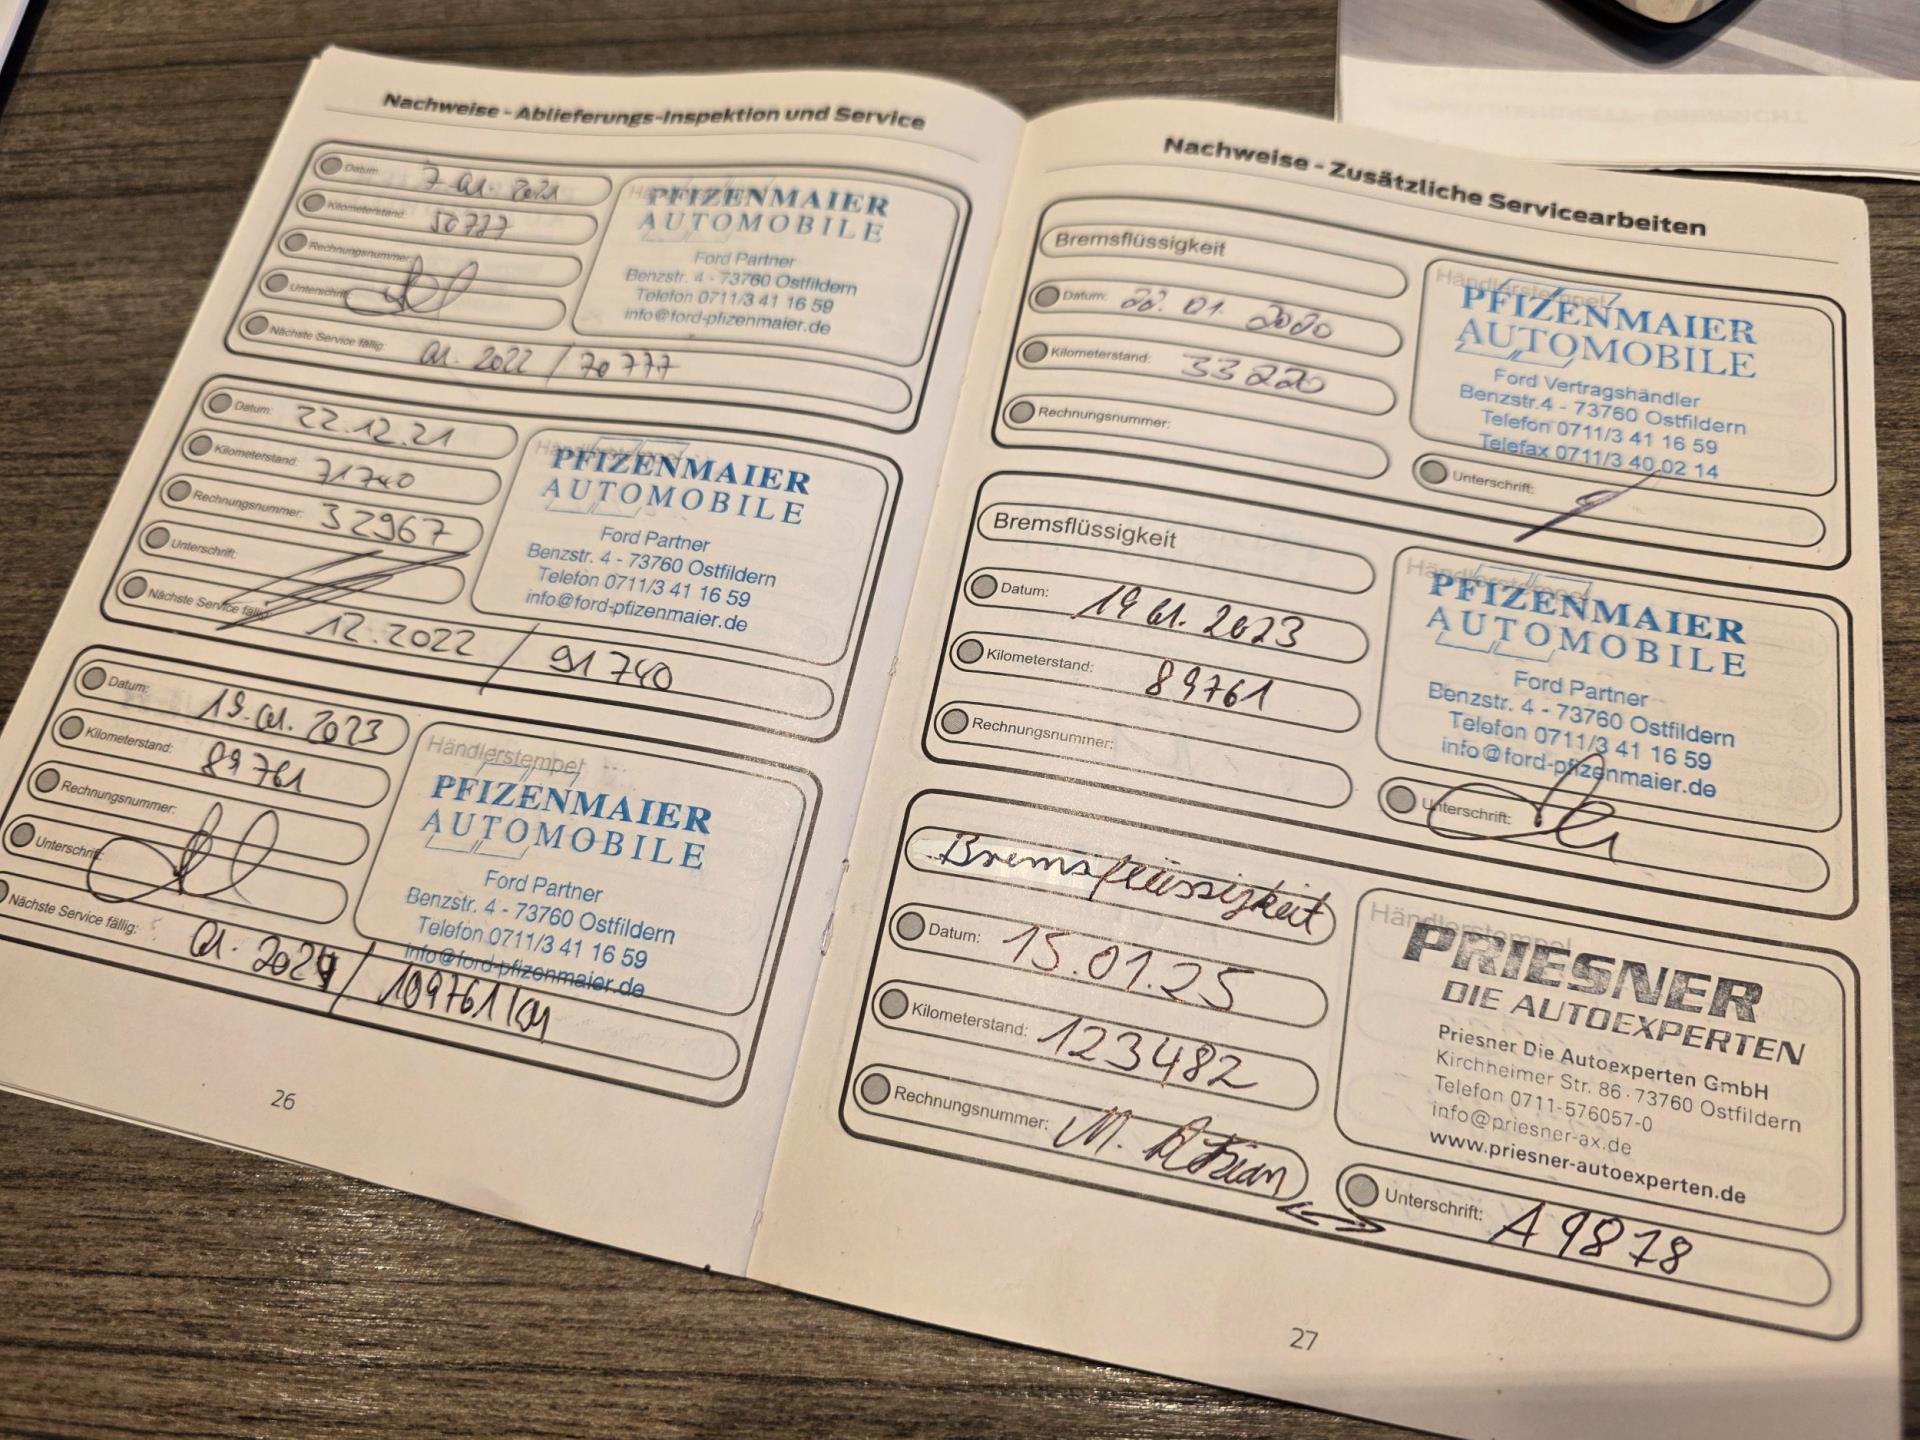 Nachweise - Ablieferungs-Inspektion und Service
Datum: 7.01.2021
Kilometerstand: 50777
Rechnungsnummer:
Unterschrift:
Nächste Service fällig: 01.2022 / 70777
Händlerstempel
PFIZENMAIER
AUTOMOBILE
Ford Partner
Benzstr. 4 - 73760 Ostfildern
Telefon 0711/3 41 16 59
info@ford-pfizenmaier.de
Datum: 22.12.21
Kilometerstand: 71740
Rechnungsnummer: 32967
Unterschrift:
Nächste Service fällig: 12.2022 / 91740
Händlerstempel
PFIZENMAIER
AUTOMOBILE
Ford Partner
Benzstr. 4 - 73760 Ostfildern
Telefon 0711/3 41 16 59
info@ford-pfizenmaier.de
Datum: 19.01.2023
Kilometerstand: 89761
Rechnungsnummer:
Unterschrift:
Nächste Service fällig: 01.2024 / 109761
Händlerstempel
PFIZENMAIER
AUTOMOBILE
Ford Partner
Benzstr. 4 - 73760 Ostfildern
Telefon 0711/3 41 16 59
info@ford-pfizenmaier.de
26
Nachweise - Zusätzliche Servicearbeiten
Bremsflüssigkeit
Datum: 22.01.2020
Kilometerstand: 33220
Rechnungsnummer:
Händlerstempel
PFIZENMAIER
AUTOMOBILE
Ford Vertragshändler
Benzstr.4 - 73760 Ostfildern
Telefon 0711/3 41 16 59
Telefax 0711/3 40 02 14
Unterschrift:
Bremsflüssigkeit
Datum: 19.01.2023
Kilometerstand: 89761
Rechnungsnummer:
Händlerstempel
PFIZENMAIER
AUTOMOBILE
Ford Partner
Benzstr. 4 - 73760 Ostfildern
Telefon 0711/3 41 16 59
info@ford-pfizenmaier.de
Unterschrift:
Bremsflüssigkeit
Datum: 15.01.25
Kilometerstand: 123482
Rechnungsnummer: M.
Händlerstempel
PRIESNER
DIE AUTOEXPERTEN
Priesner Die Autoexperten GmbH
Kirchheimer Str. 86 · 73760 Ostfildern
Telefon 0711-576057-0
info@priesner-ax.de
www.priesner-autoexperten.de
Unterschrift: A9878
27